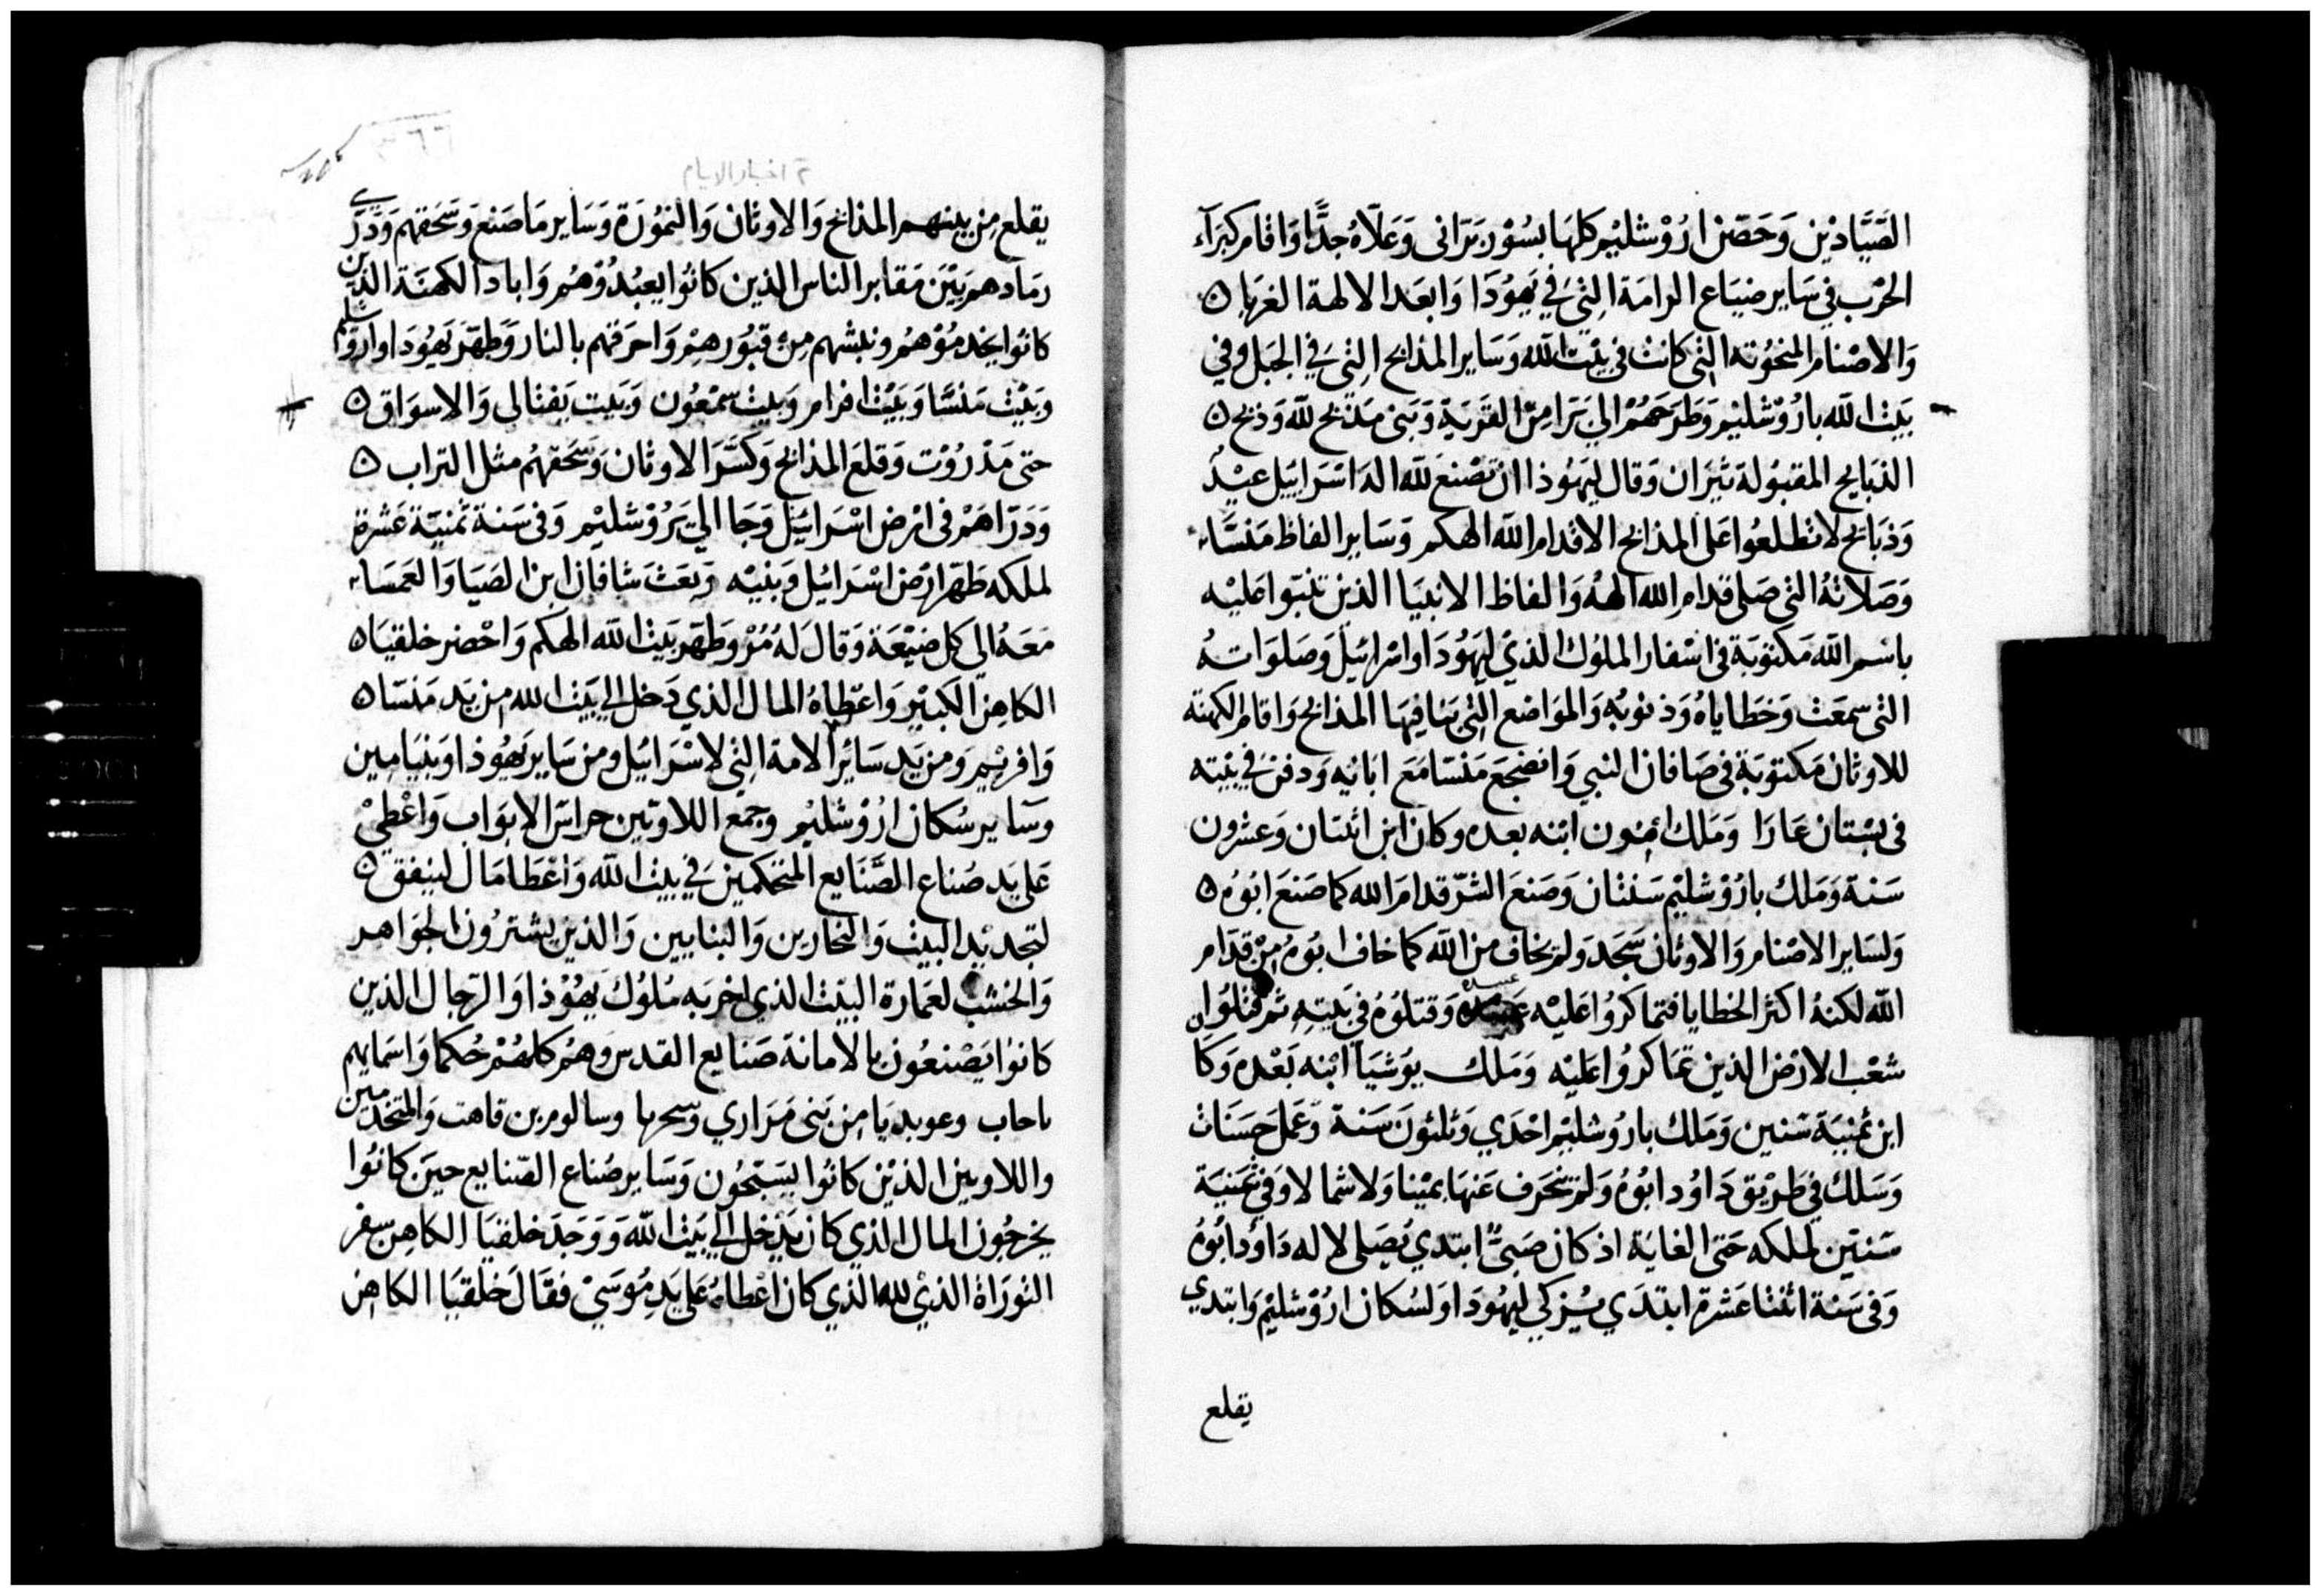 الصَّيَّادِيْن وَحَصّن ارُوْشليْم كلهَا بسُوْر بَرّانى وَعَلّاهُ جدًّا وَاقام كبرآء
الحرْب في سَاير ضيَاع الرامَة التى فى يَهوُدَا وَابعَد الالهة الغربا ه
وَالاصْنام المنحُوتة التى كانت فى بيْت الله وَسَاير المذابح التى فى الجبَل وفى
بَيْت الله بارُوْشليْم وَطرَحَهُمْ الي بَرّا مِن القَريَة وَبَنى مَذبح لله وَذبح ه
الذبَايح المقبُولة ثيرَان وَقال ليهُوذا ان تصْنَع لله اله اسْرَاييَل عيْدً
وَذبَايح لا تطلعُوا عَلى المذابح الا قدام الله الهكم وَسَاير الفاظ مَنسَّا
وَصَلاتهُ التى صَلى قدام الله الههُ وَالفاظ الانبيَا الذين تنبّوا عَليْه
باسْم الله مَكتوبَة فى اسْفار الملوُك الذي ليَهُودَا واسْرائيَل وَصَلوَاتهُ
التى سمعَت وَخطاياهُ وَذنوُبه وَالموَاضع التى بَنا فيهَا المذابح وَاقام الكهنَة
للاوثان مَكتوبَة فى صَافان النبي وَانضجعَ مَنسّا مَعَ ابَائه وَدفن في بيْته
فى بسْتان عَازا وَمَلك امُون ابنه بعده وكان ابن اثنتان وَعشرون
سَنة وَمَلك بارُوْشليْم سَنتان وَصَنعَ الشرّ قدامَ الله كما صَنعَ ابُوهُ ه
وَلسَاير الاصْنام وَالاوثان سَجَد وَلم يخاف من الله كما خاف ابُوهُ مِنْ قدَام
الله لكنهُ اكثر الخطايا فتماكرُوا عَليْه عبيده وَقتلوُهُ في بَيته ثم قتلُوا
شعْب الارْض الذين تمَاكرُوا عَليْه وَمَلك يوُشيَا ابْنه بَعْده وَكان
ابن ثمنيَة سنين وَمَلك بارُوشليْم احْدَي وَثلثوُنَ سَنة وَعَمل حسَنات
وَسَلك فى طرْيق دَاوُد ابُوهُ وَلم ينحَرف عَنهَا يميْنا وَلا شمالا وَفي ثمنيَة
سَنتين لملكه حَتى الغايَة اذ كان صَبىًّ ابتدي يُصَلى لاله دَاوُد ابُوهُ
وَفى سَنة اثنتا عَشرة ابتدَي يُزكي ليهُودَا وَلسُكان ارُوْشليْم وَابتدي
يقلع
٢ اخبار الايام
٣٦٦
يقلع مِن بينهم المذابح وَالاوثان وَالتموُرَة وَسَاير مَا صَنع وَسَحَقهم وَدَرّي
رمَادهم بَيْن مَقابر الناس الذين كانوُا يعبُدُوْهُم وَاباد الكهنَة الذين
كانوُا يخدمُوْهُم ونبشهم مِنْ قبُوْرهمْ وَاحرَقهم بالنار وَطهّر يَهُودَا وارُوشليم
وَبيْت مَنسَّا وَبيْت افرام وَبيْت سمْعُون وَبَيت يَفتالى وَالاسوَاق ه
حتى مَدْرُوْت وَقلعَ المذابح وَكسَّرَ الاوثان وَسَحَقهُم مثل التراب ه
وَدَرّاهُمْ فى ارْض اسْرَائيَل وَجَا الي يَرُوْشليْم وَفى سَنة ثمنيّة عَشرة
لملكه طهّر ارْض اسْرَائيل وَبنيْه وَبعَثَ شافان ابن الصَيَا وَالعَمسَا
مَعَهُ الى كل ضيْعَة وَقالَ لهُ مُرْ وَطهّر بَيْت الله الهكم وَاحْضر خلقيَا ه
الكاهِن الكبيْر وَاعْطاهُ المال الذي دَخل الي بيَت الله من يَد مَنسّا ه
وَافريْم وَمن يَد سَائر الامة التى لاسْرَائيل ومن سَاير يَهُوذا وبنيَامِين
وسَاير سُكان ارُوْشليْم وجمع اللاوّيين حراس الابوَاب وَاعْطيْ
عَلى يَد صُناع الصَّنَايع المتحكمين فى بيْت الله وَاعْطا مَال لينفق ه
لتجديْد البيْت وَالنجارين وَالبنايين وَالذين يشترُون الجوَاهر
وَالخشب لعمَارة البيْت الذى اخرَبه مُلوُك يَهُوْذا وَالرّجال الذين
كانوا يَصْنعُون بالامانة صَنايع القدس وَهُم كلهُمْ حُكما وَاسْمايهم
ياحاب وعوبديَا مِن بَنى مَرَاري وسحريا وسالوم بن قاهت وَالمتخدّمين
واللاويين الذيْن كانوا يسَبّحُون وَسَاير صُناع الصّنايع حينَ كانوُا
يخرجُون المال الذي كان يَدْخل الي بَيْت الله وَوَجَدَ خلقيَا الكاهِن سِفر
التورَاة الذيْ لله الذي كان اعْطاهُ عَلى يَد مُوسَىْ فقَالَ خلقيَا الكاهن